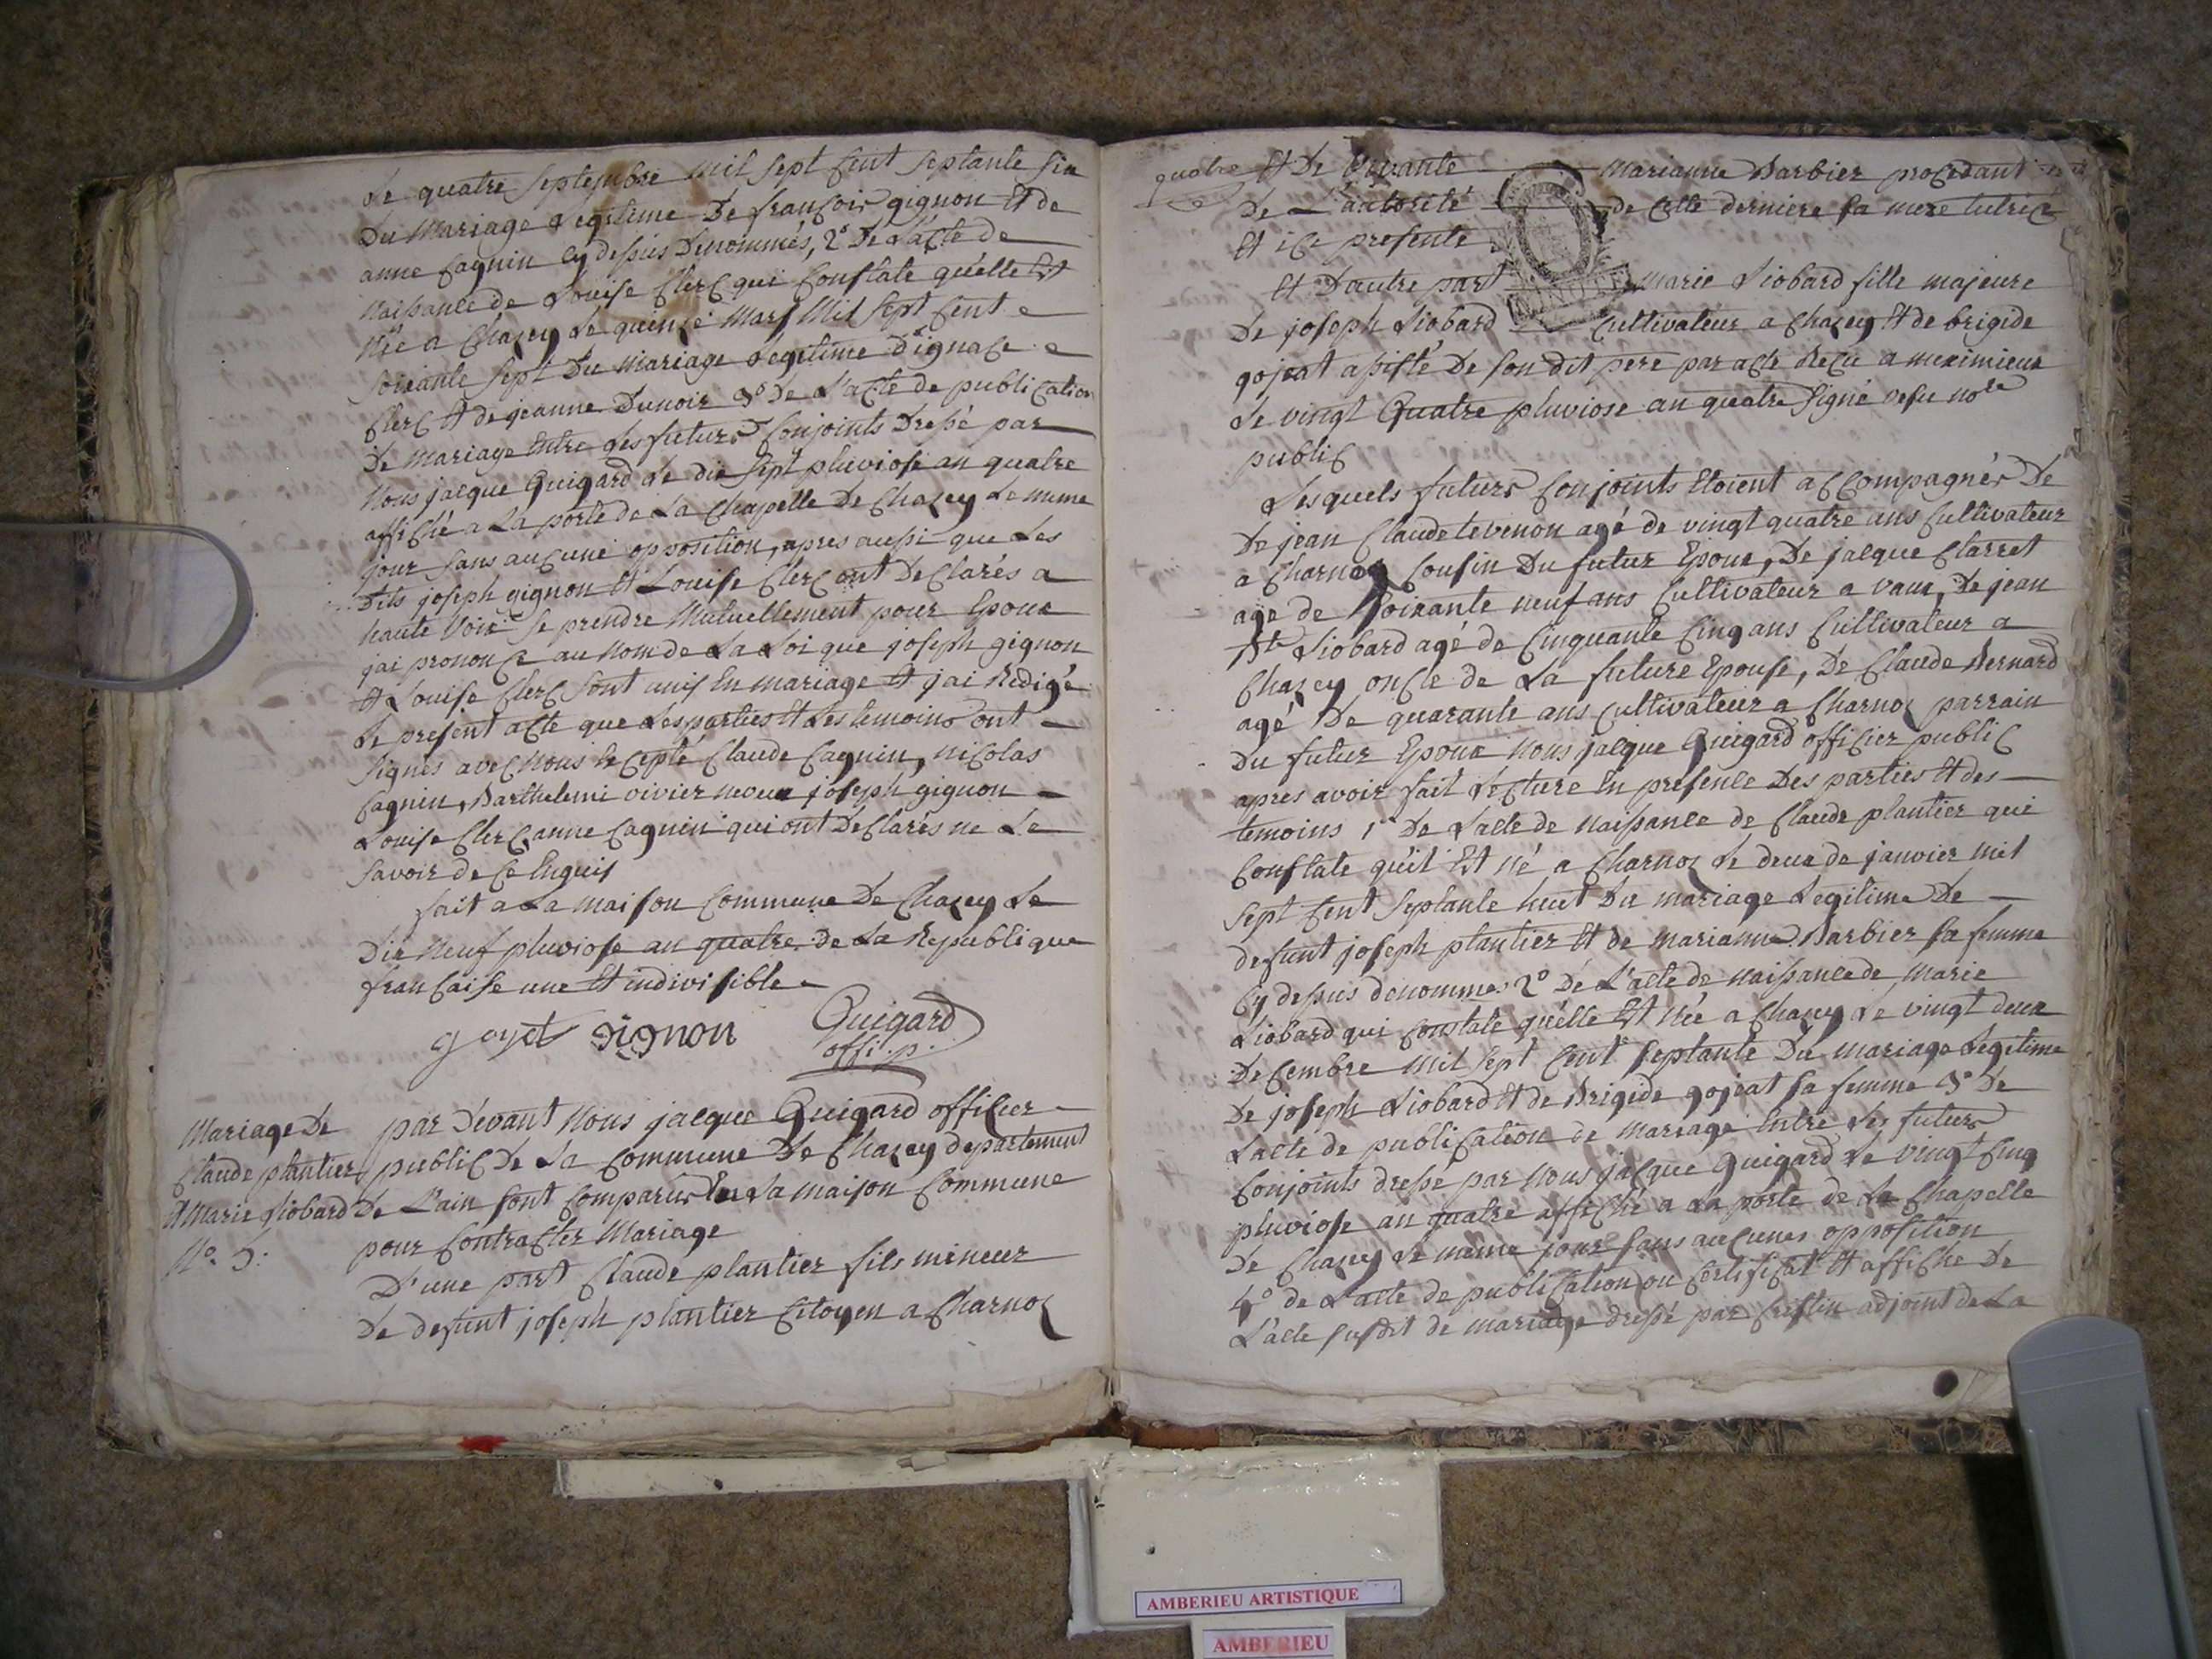 Le quatre septembre mil sept cent septante six
Du Mariage Legitime De francois gignon Et de
anne Cagnin cy dessus Denommés, 2° De L'acte de
Naissance de Louise Clerc qui Constate quelle Est
Née a Chazey Le quinze Mars Mil Sept Cent
soixante sept Du Mariage Legitime D'ignace
Clerc Et de jeanne Dunoir 3° De L'acte de publication
De Mariage Entre Les futurs Conjoints Dressé par
Nous jacque Quigard Le dix sept pluviose an quatre
affiché a La porte de La Chapelle De Chazey Le meme
jour sans aucune opposition, apres aussi que Les
Dits joseph gignon Et Louise Clerc ont Declarés a
haute Voix se prendre Mutuellement pour Epoux
jai prononcé au Nom de La Loi que joseph gignon
Et Louise Clerc sont unis En mariage Et jai Redigé
Le present acte que Les parties Et Les temoins ont
signés avec Nous Excepté Claude Cagnin, Nicolas
Cagnin, Barthelemi vivier neveux joseph gignon
Louise Clerc anne Cagnin qui ont Declarés ne Le
savoir de ce Enquis
fait a La maison Commune De Chazey Le
Dix Neuf pluviose an quatre de La Republique
francaise une Et indivisible
goyet gignon Quigard
offi. p.
Mariage De
Claude plantier
Et Marie Liobard
N°. 5.
par Devant Nous jacque Quigard officier
public De La Commune De Chazey departement
De L'ain sont Comparus En La maison Commune
pour Contracter Mariage
D'une part Claude plantier fils mineur
De defunt joseph plantier Citoyen a Charnoz
quatre
Et De vivante Marianne Barbier procedant
De L'autorité de celle derniere sa mere tutrice
Et ici presente
Et D'autre part Marie Liobard fille majeure
De joseph Liobard Cultivateur a Chazey Et de brigide
gojeat assisté De son dit pere par acte Recu a meximieux
Le vingt Quatre pluviose an quatre signé no.re
public
Lesquels futurs Conjoints Etoient accompagnés De
De jean Claude tevenon agé de vingt quatre ans Cultivateur
a Charnoz Cousin Du futur Epoux, De jacque Clarret
agé de soixante neuf ans Cultivateur a vaux, De jean
Bte Liobard agé de Cinquante Cinq ans Cultivateur a
Chazey oncle de La future Epouse, De Claude Bernard
agé De quarante ans Cultivateur a Charnoz parrain
Du futur Epoux Nous jacque Quigard officier public
apres avoir fait Lecture En presence Des parties Et des
temoins 1° De L'acte de Naissance de Claude plantier qui
Constate qu'il Est Né a Charnoz Le deux de janvier mil
sept Cent Septante huit Du mariage Legitime De
defunt joseph plantier Et de marianne Barbier sa femme
Cy dessus denommes 2° De L'acte de Naissance de Marie
Liobard qui constate quelle Est Née a Chazey Le vingt deux
Decembre Mil Sept Cent Septante Du mariage Legitime
De joseph Liobard Et de Brigide gojeat sa femme 3° De
L'acte de publication de Mariage Entre Les futurs
Conjoints dressé par Nous jacque Quigard Le vingt Cinq
pluviose an quatre affiché a La porte de La Chapelle
De Chazey Le meme jour sans aucunes opposition
4° de L'acte de publication ou Certificat Et affiche De
L'acte susdit de mariage dressé par adjoint de La
AMBERIEU ARTISTIQUE
AMBERIEU